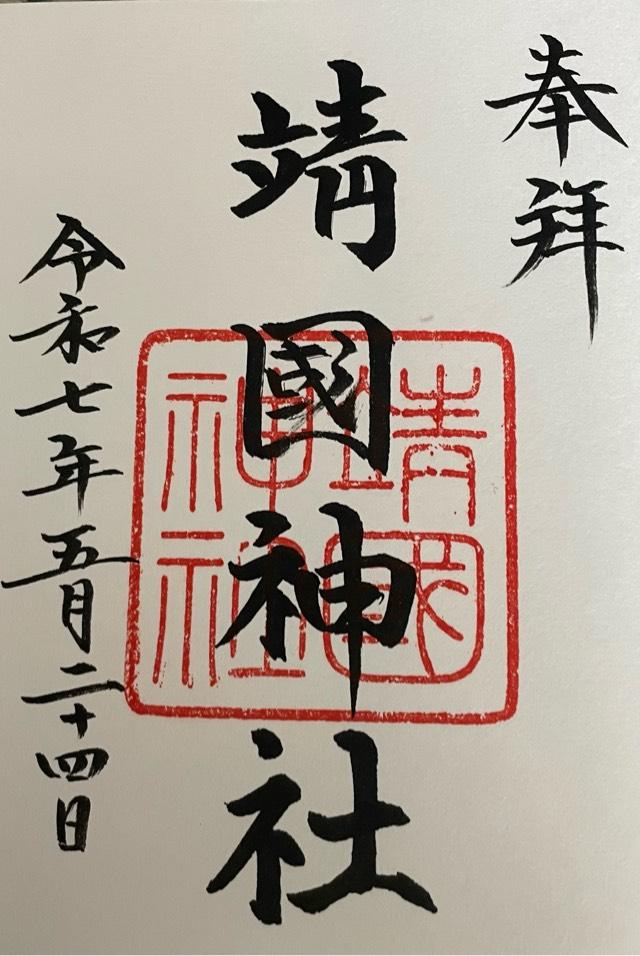 奉拝
靖國神社
靖國神社
令和七年五月二十四日